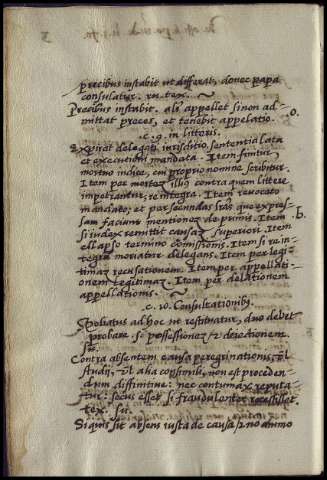 precibus instabit ut differat, donec papa
consulatur. ru. tex.
Precibus instabit. al's appellet si non ad-
mittat preces, et tenebit appelatio. o.
c. 9. in litteris.
Expirat delegati iurisditio, sententia lata
et executioni mandata. Item finitur
mortuo iudice, cui proprio nomine scribitur.
Item per mortez illius contra quem littere
impetrantur, re integra. Item revocato
mandato, et per secundas l'ras que expres-
sam faciunt mentionez de primis. Item b.
si iudex remittit causaz superiori. Item
ellapso termino comissionis. Item si re in-
tegra moriatur delegans. Item per legi-
timaz recusationem. Item per appellati-
onem legitimaz. Item per delationem
appellationis.
c. 10. Consultationibus.
Spoliatus ad hoc ut restituatur, duo debet
probare s. possessionez et deiectionem.
sic.
Contra absentem causa peregrinationis, vel
studii, vel alia consimili, non est proceden-
dum diffinitive: nec contumax reputa-
tur: secus esset si fraudulenter
tex. sic.
Si quis sit absens iusta de causa et no animo